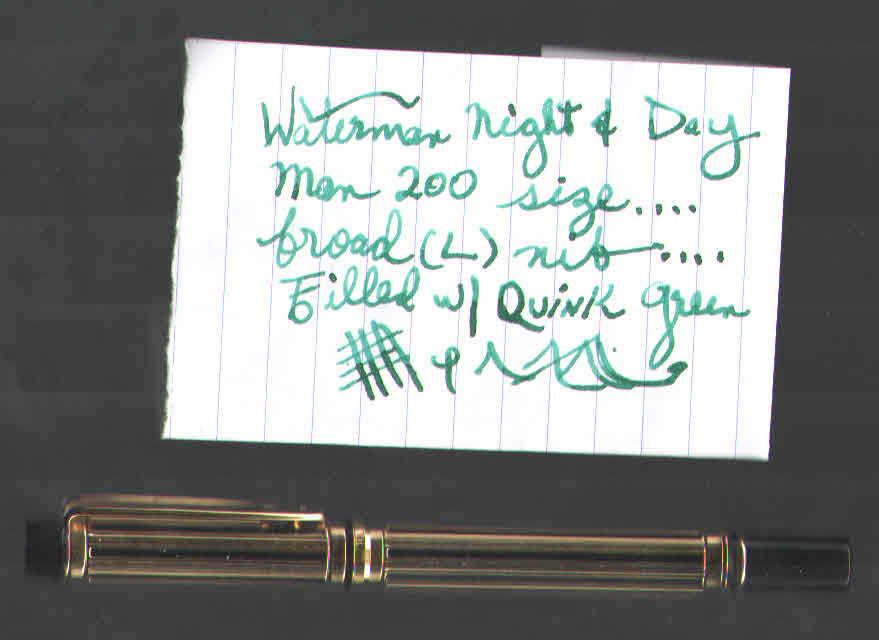 Waterman Night & Day
Man 200 size....
broad (L) nib....
Filled w/ Quink Green